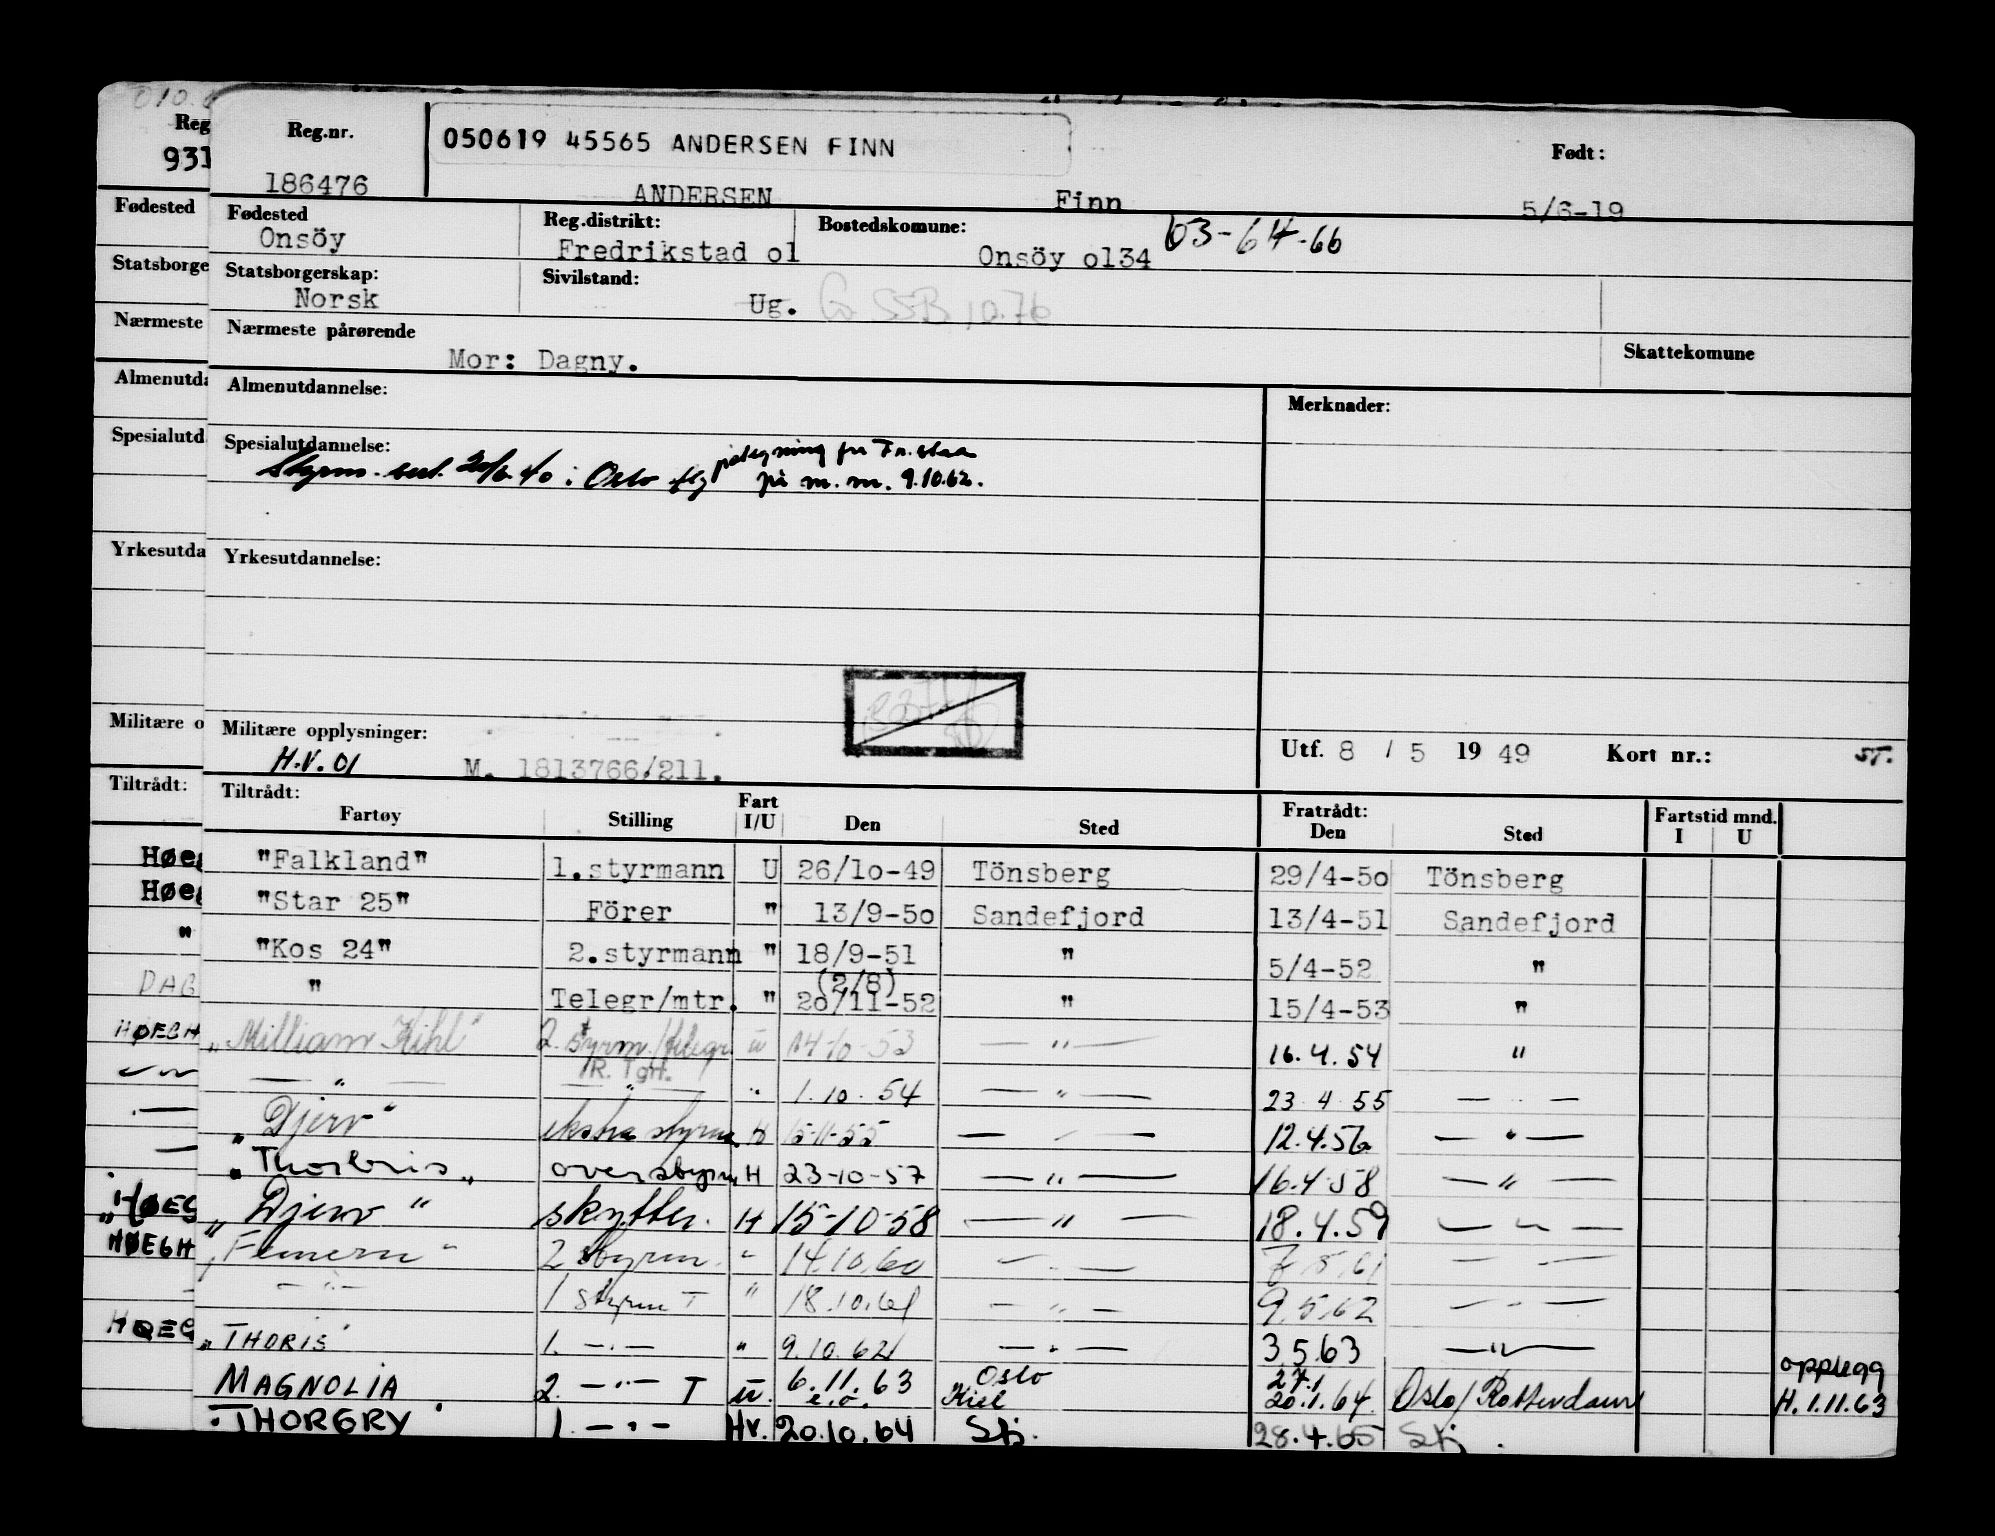 Reg.nr. 050619 45565 ANDERSEN FINN Født:
186476 ANDERSEN Finn 5/6-19
Fødested Reg.distrikt: Bostedskomune: 63-64-66
Onsöy Fredrikstad ol Onsöy ol34
Statsborgerskap: Sivilstand:
Norsk Ug. SSB 10.76
Nærmeste pårørende Skattekomune
Mor: Dagny.
Almenutdannelse: Merknader:
Spesialutdannelse:
i Oslo
på m.m. 9.10.62.
Yrkesutdannelse:
Militære opplysninger: Utf. 8 / 5 19 49 Kort nr.: ST.
H.V. 01 M. 1813766/211.
Tiltrådt: Fart Fratrådt: Fartstid mnd.
Fartøy Stilling I/U Den Sted Den Sted I U
"Falkland" 1.styrmann U 26/lo-49 Tönsberg 29/4-5o Tönsberg
"Star 25" Förer " 13/9-5o Sandefjord 13/4-51 Sandefjord
"Kos 24" 2.styrmann " 18/9-51 " 5/4-52 "
(2/8)
" Telegr/mtr. " 2o/11-52 " 15/4-53 "
"William Kihl" 2. styrm./telegr. u 14-10-53 — " — 16.4.54 "
/R. Tgr.
— " — — " — " 1.10.54 — " — 23 4 55 — " —
"Djerv" ekstra styrm. H 15-11-55 — " — 12.4.56 — " —
"Thorbris" overstyrm. H 23-10-57 — " — 16.4.58 — " —
"Djerv" skytter. H 15-10-58 — " — 18.4.59 — " —
"Femern" 2 styrm. " 14.10.60 — " — 7.5.61 — " —
— " — 1 styrm T " 18.10.61 — " — 9.5.62 — " —
"THORIS" 1. — " — " 9.10.62 — " — 3.5.63 — " —
opplegg
MAGNOLIA 2. — " — T u. 6.11.63 Oslo 27.1
e.o. Kiel 20.1.64. Oslo/Rotterdam H. 1.11.63
"THORGRY" 1. — " — Hv. 20.10.64 Sfj. 28.4.65 Sfj.
Reg
931
Fødested
Statsborge
Nærmeste
Almenutda
Spesialutd
Yrkesutda
Militære o
Tiltrådt:
Høeg
Høeg
"
DAG
HØEGH
HØEG
HØEGH
HØEG